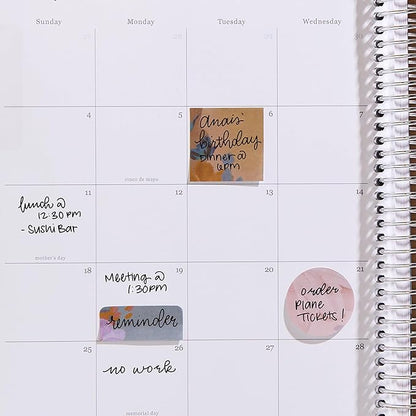 Sunday Monday Tuesday Wednesday
4 5 6 7
anais'
birthday
Dinner @
6pm
cinco de mayo
11 12 13 14
lunch @
12:30pm
- Sushi Bar
mother's day
18 19 20 21
Meeting @
1:30pm
reminder
order
Plane
Tickets!
25 26 27 28
no work
memorial day